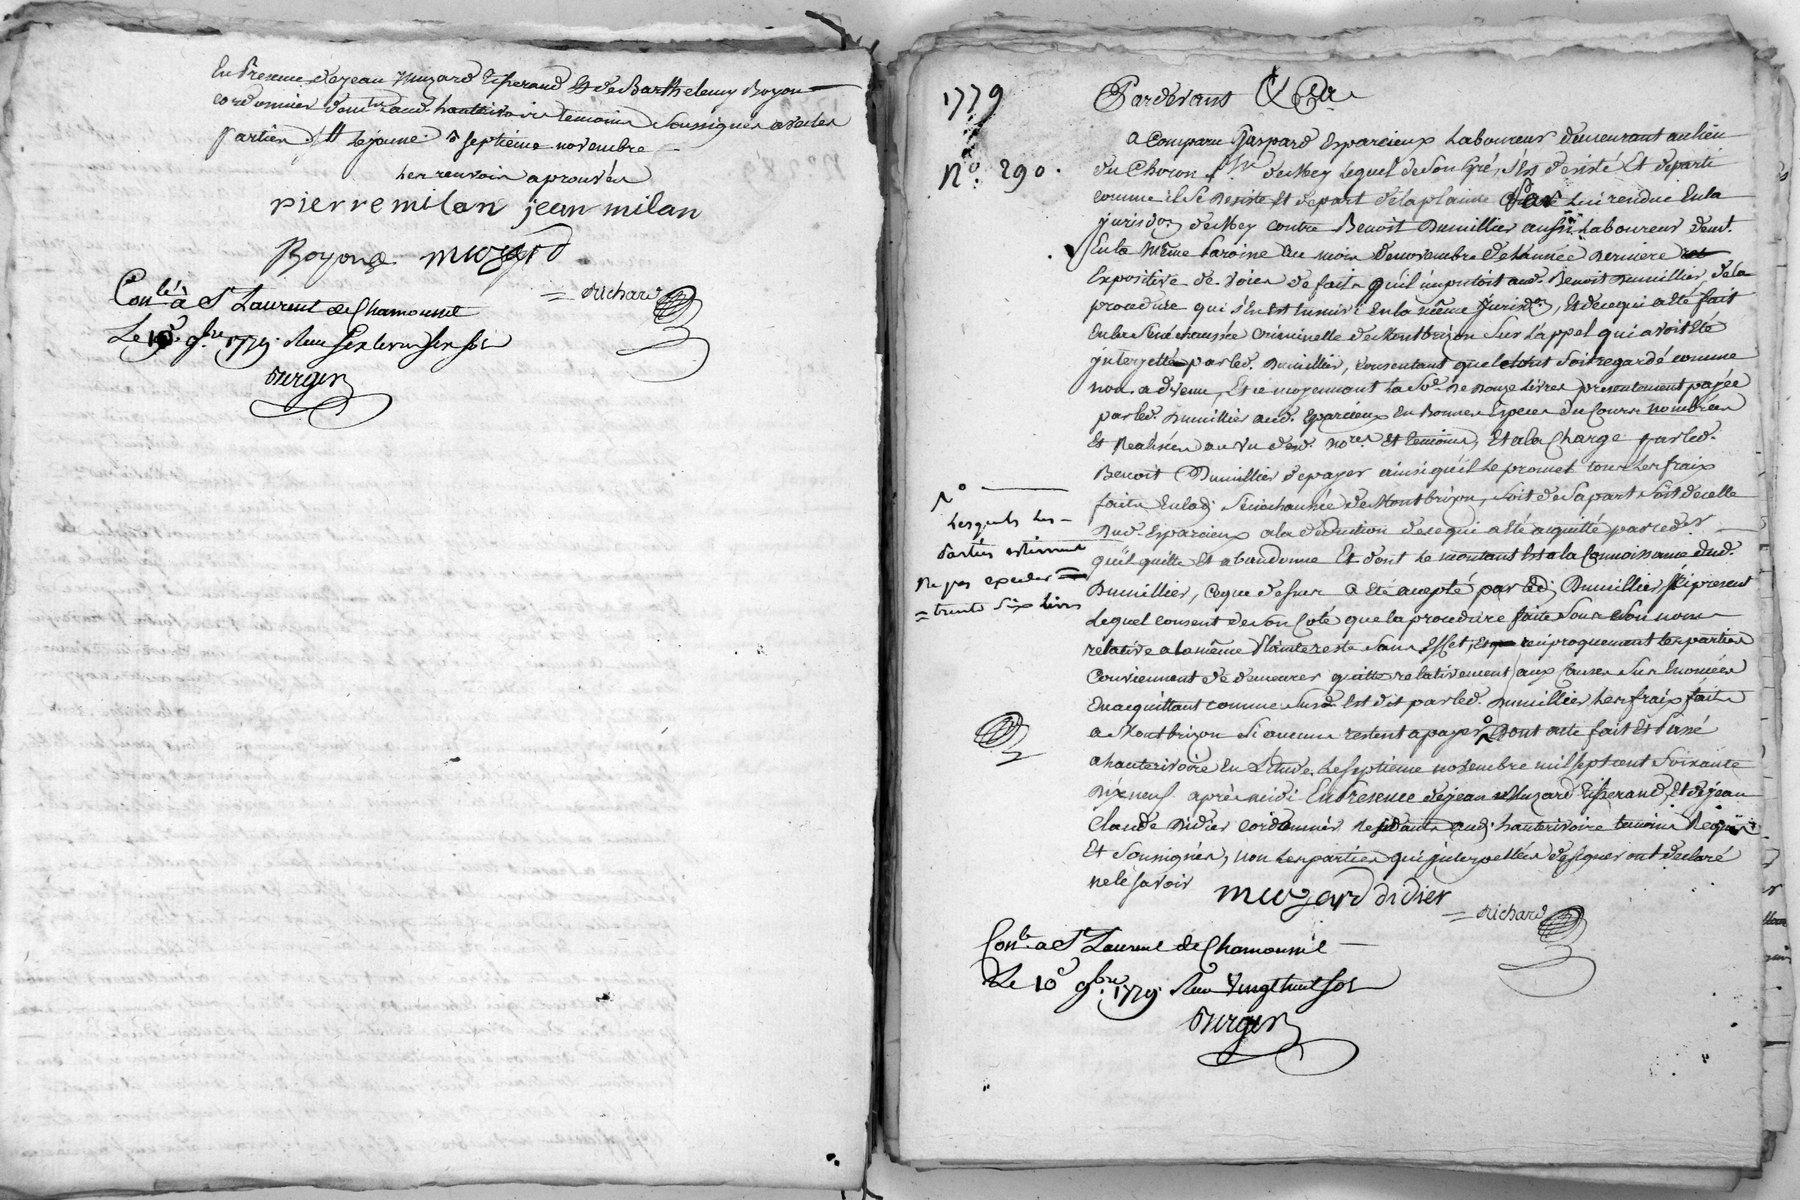 En Presence de jean Muzard Tisserand Et de Barthelemy Boyon
cordonnier dem.rs aud. hauterivoire temoins soussignes avec les
parties d'Et Lejeune. septième novembre
les renvois aprouvés
pierre milan jean milan
Boyon muzard
Richard
Con.lé à St Laurent de Chamousset
Le 10e 9bre 1779. Reçu six sols
Durger
1779
No. 290.
Pardevant &
a Comparu Gaspard Eparcieux Laboureur demeurant au lieu
du Choron psse de Mey lequel de son Gré, s'est desisté Et departi
comme il se desiste Et depart de la plainte par lui rendue En la
jurisdon de Mey contre Benoit Dumillier aussi Laboureur dem.t
En la même Paroisse au mois de novembre de l'année derniere
Expositive de voies de faits qu'il imputoit aud. Benoit Dumillier de la
procedure qui s'en est ensuivi En la même jurisdon, Et de ce qui a été fait
En la Senechaussée Criminelle de Montbrizon sur l'appel qui avoit Eté
jnterjetté par led. Dumillier, consentant que le tout soit regardé comme
non advenu, Et ce moyennant la Se. de douze Livres presentement payée
par led. Dumillier aud. Eparcieux En Bonnes Espèces du Cours nombrées
Et Realisées au vu desd. nores Et temoins, Et a la Charge par led.
Benoit Dumillier de payer ainsi qu'il le promet tous les fraix
faits En lad. Senechaussée de Montbrizon, soit de sa part soit de celle
dud. Eparcieux a la deduction de ce qui a été aquitté par ced.er
qu'il quitte Et abandonne Et dont le montant Est a la Connoissance dud.
Dumillier, Ce que dessus a été accepté par led. Dumillier, ici present
Lequel consent de son Coté que la procedure faite sous son nom
relative a la même plainte reste sans Effet, reciproquement les parties
Conviennent de demeurer quitte relativement aux Causes sus Enoncées
En acquittant comme susd. Est dit par led. Dumillier les fraix faits
a Montbrizon si aucuns restent a payer, Dont acte fait Et Passé
a hauterivoire En Etude, Le septième novembre mil sept cent soixante
dix neuf après midi En Presence de jean Muzard Tisserand, Et de jean
Claude Didier cordonnier residants aud. hauterivoire temoins Requis
Et Soussignés, non les parties qui jnterpellées de signer ont declaré
ne le savoir
muzard didier
Richard
Lesquels les
Parties estiment
Ne pas exceder
trente six Livres
Con.lé a St Laurent de Chamousset
Le 10e 9bre. 1779. Reçu vingt huit sols
Durger